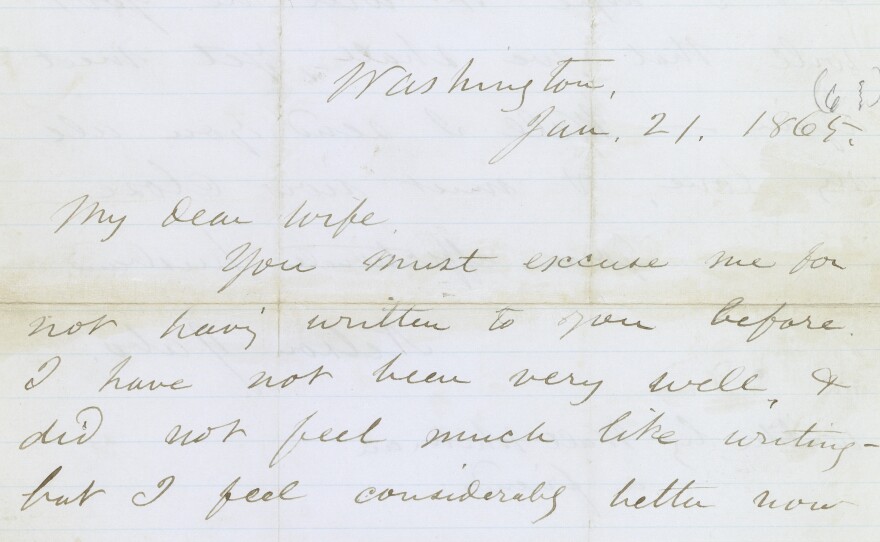 Washington,
(61)
Jan. 21. 1865.
My dear wife.
You must excuse me for
not havig written to you before.
I have not been very well, &
did not feel much like writing-
but I feel considerably better now